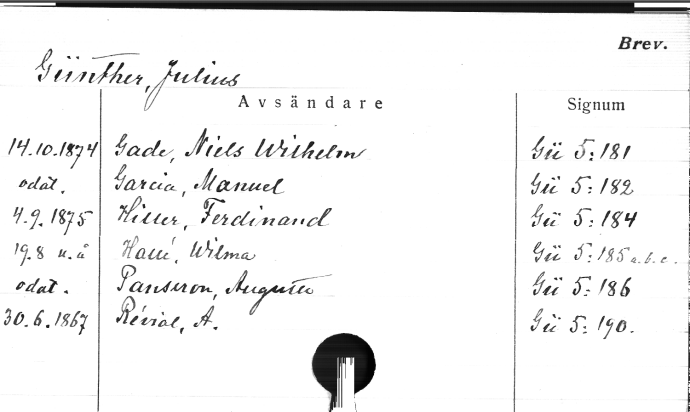 Brev.
Günther, Julius
Avsändare Signum
14.10.1874 Gade, Niels Wilhelm Gü 5:181
odat. Garcia, Manuel Gü 5:182
4.9.1875 Hiller, Ferdinand Gü 5:184
19.8 u.å Hallé, Wilma Gü 5:185 a.b.c.
odat. Panseron, Auguste Gü 5:186
30.6.1867 Révial, A. Gü 5:190.